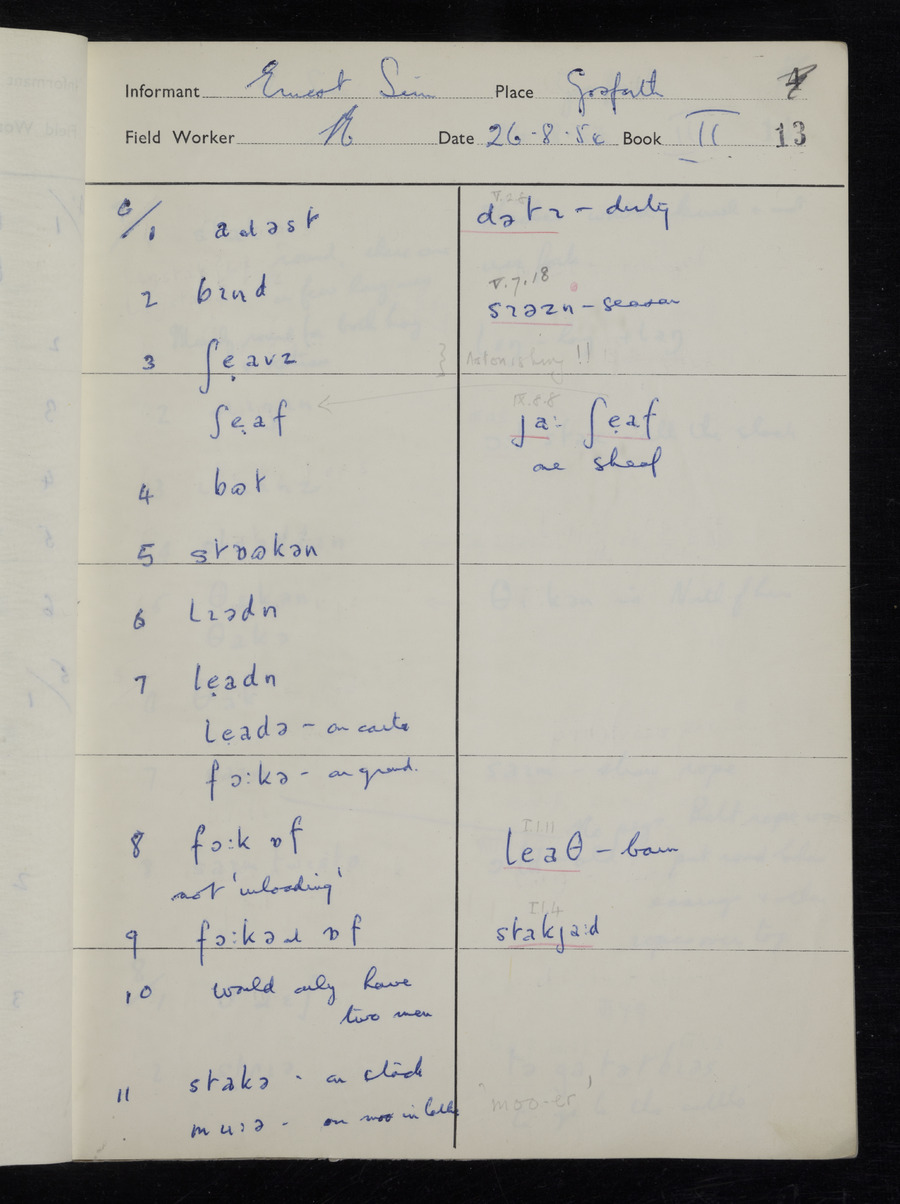 Informant Ernest Place Gosforth
Field Worker Date 26·8·5 Book II 13
6/1 aɹəst
V.2.8
dətɪ – dusty
2 bɪnd
V.7.18
sɪəzn – season
3 ʃẹavz } Astonishing !!
ʃẹaf
IX.8.8
ja: ʃẹaf
one sheaf
4 bɷt
5 stɒɷkən
6 lɪədn
7 lẹadn
lẹadə – on carts
fɔ:kə – on ground.
8 fɔ:k ɒf
I.1.11
leaθ – barn
not 'unloading'
9 fɔ:kəɹ ɒf
I.1.4
stakja:d
10 would only have
two men
11 stakə - on stack
mu:ə - on moo in
'moo-er'